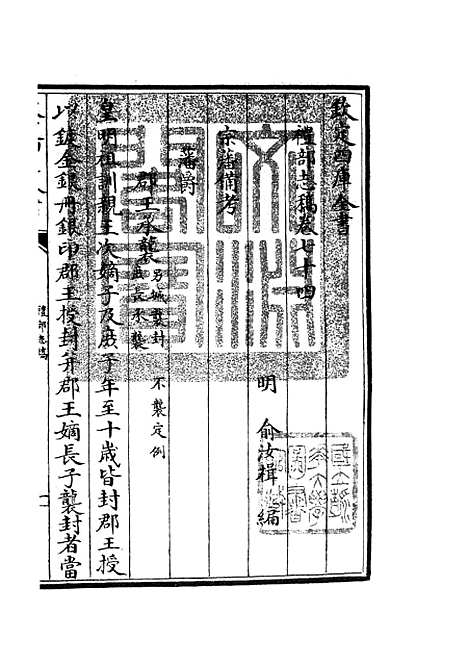 欽定四庫全書
禮部志稿卷七十四
明 俞汝楫 編
宗藩備考
藩爵
郡王承襲 另城襲封 孟長承襲 不襲定例
皇明祖訓親王次嫡子及庶子年至十歲皆封郡王授
以鍍金銀冊銀印郡王授封并郡王嫡長子襲封者當
禮部志稿